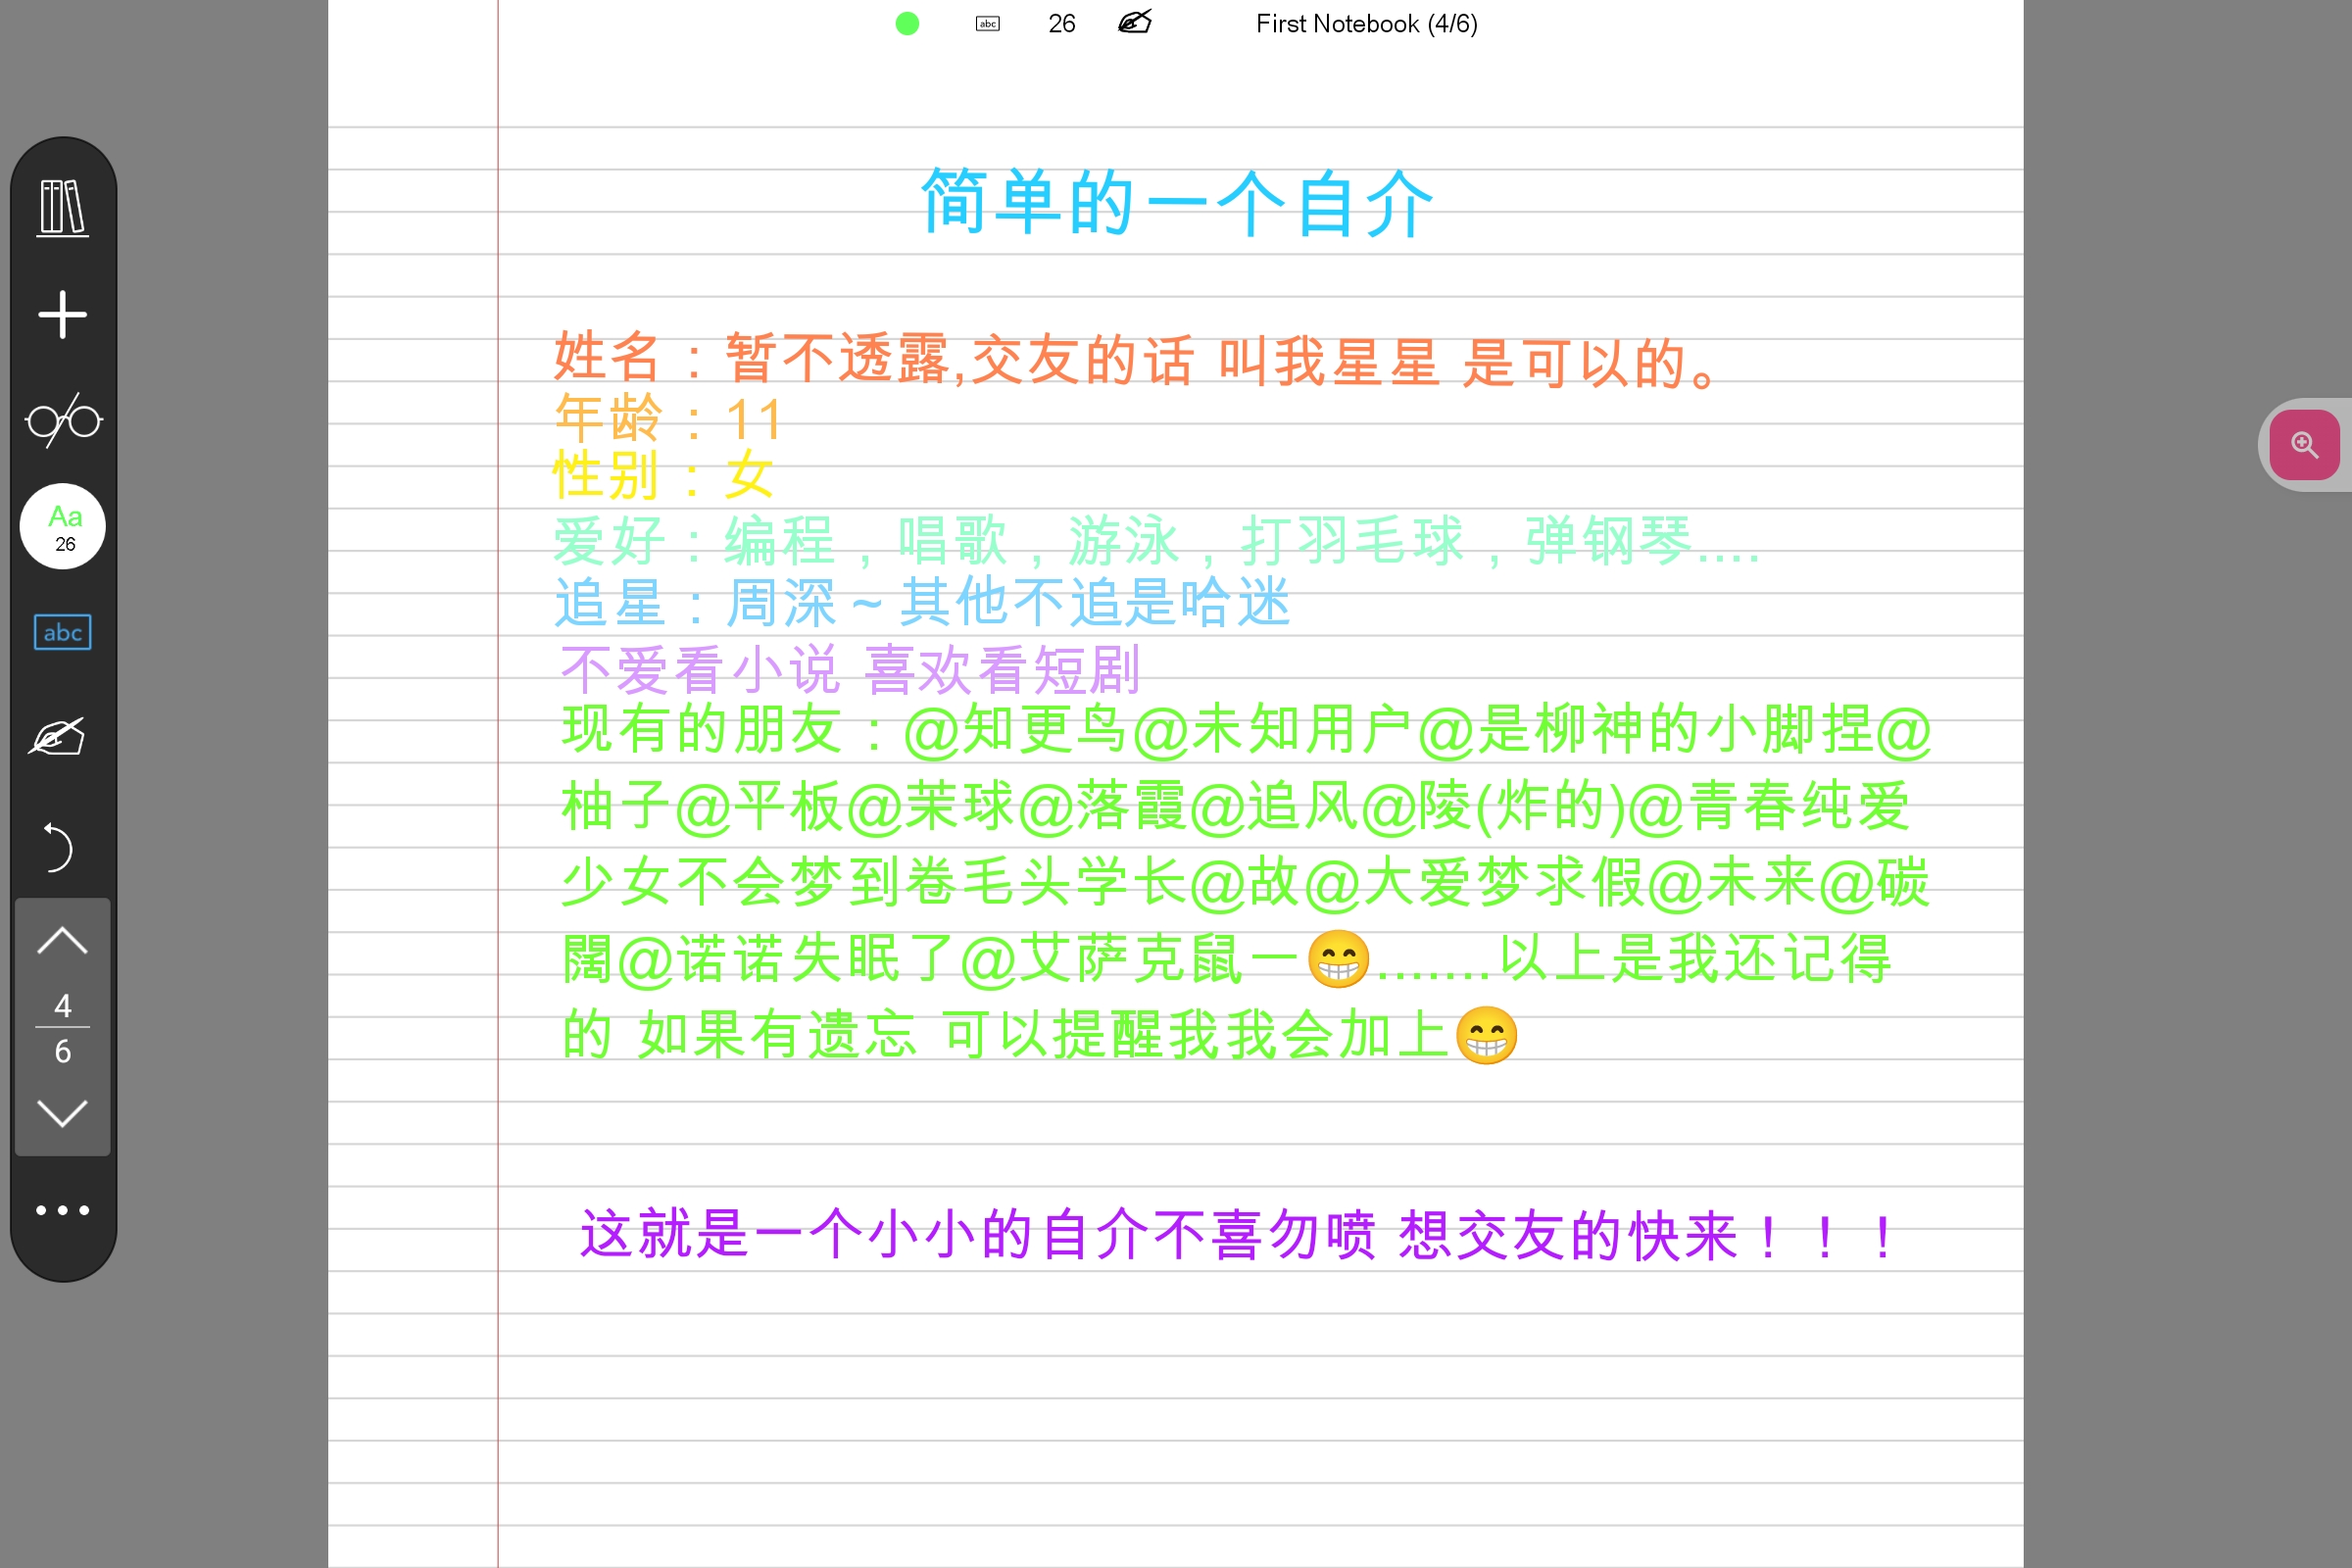 abc 26 First Notebook (4/6)
简单的一个自介
姓名：暂不透露,交友的话 叫我星星 是可以的。
年龄：11
性别：女
爱好：编程，唱歌，游泳，打羽毛球，弹钢琴....
追星：周深~其他不追是哈迷
不爱看小说 喜欢看短剧
现有的朋友：@知更鸟@未知用户@是柳神的小脚捏@
柚子@平板@某球@落霞@追风@陵(炸的)@青春纯爱
少女不会梦到卷毛头学长@故@大爱梦求假@未来@碳
閣@诺诺失眠了@艾萨克鼠一😁.......以上是我还记得
的 如果有遗忘 可以提醒我我会加上😁
这就是一个小小的自介不喜勿喷 想交友的快来！！！
Aa
26
abc
4
6